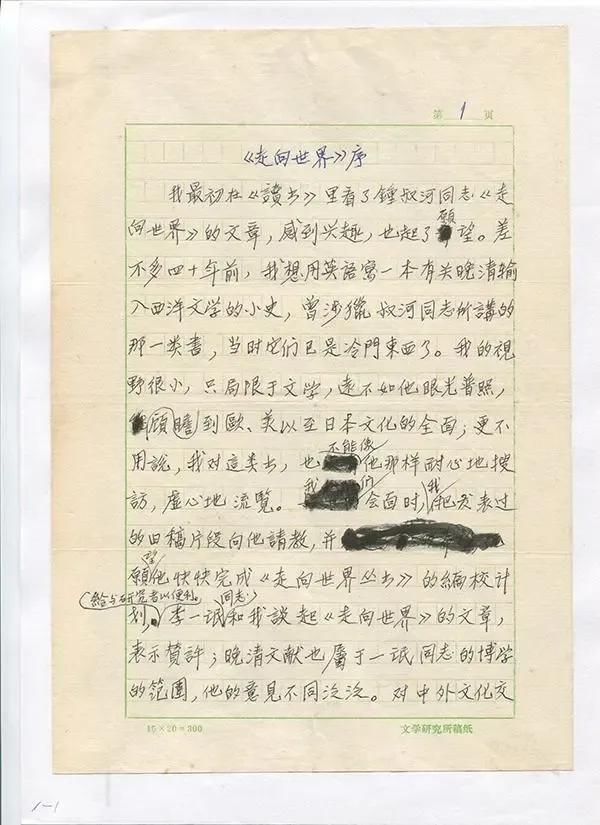 第 1 页
《走向世界》序
我最初在《讀书》里看了鍾叔河同志《走
向世界》的文章，感到兴趣，也起了願望。差
不多四十年前，我想用英語寫一本有关晚清输
入西洋文学的小史，曾涉獵叔河同志所講的
那一类書，当时它们已是冷門東西了。我的視
野很小，只局限于文学，遠不如他眼光普照，
顧瞻到歐、美以至日本文化的全面；更不
用說，我对這类书，也不能像他那样耐心地搜
訪，虚心地流覽。我们会面时，我把发表过
的旧稿片段向他請教，并
願望他快快完成《走向世界丛书》的編校计
划，（給与研究者以便利。）李一氓同志和我談起《走向世界》的文章，
表示贊許；晚清文献也屬于一氓同志的博学
的范圍，他的意見不同泛泛。对中外文化交
15×20=300 文学研究所稿纸
1-1